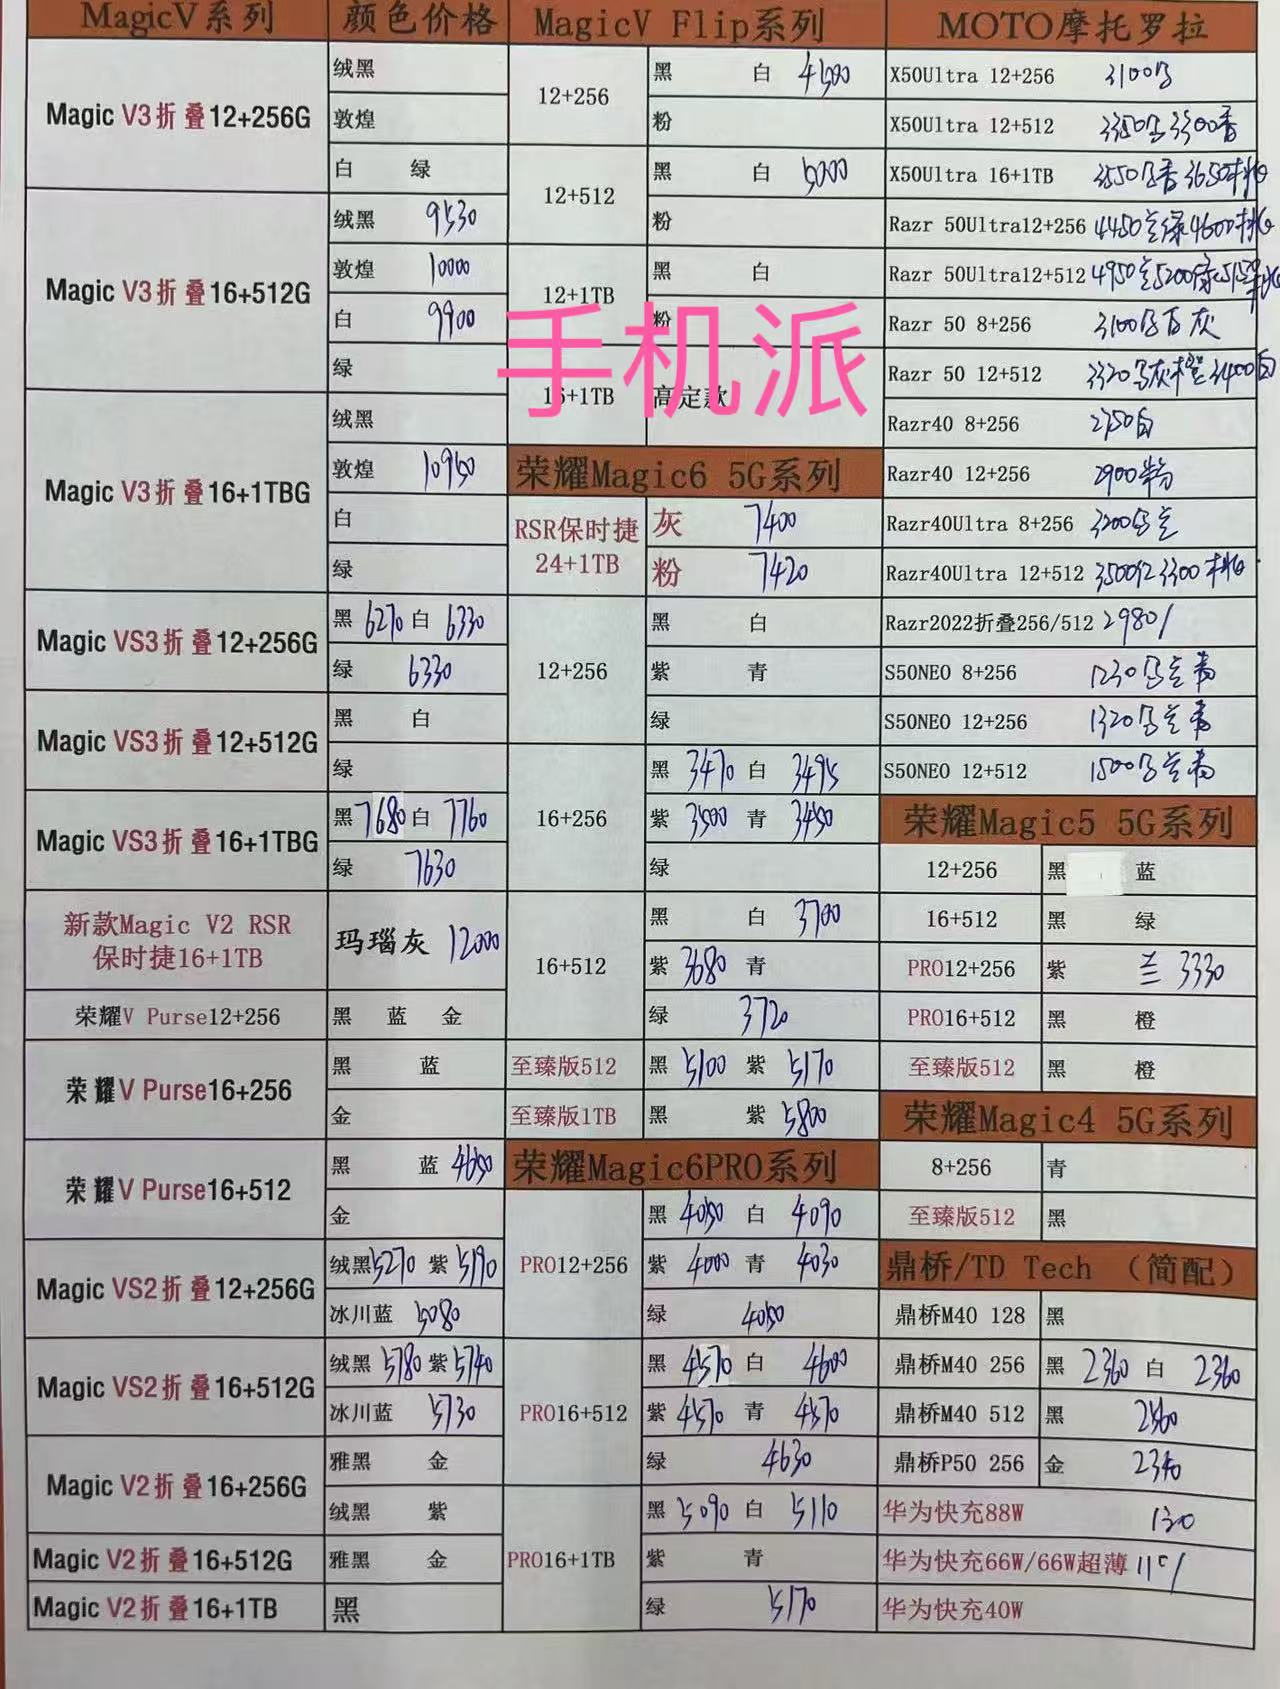 MagicV系列 颜色价格
Magic V3折叠12+256G
绒黑
敦煌
白 绿
Magic V3折叠16+512G
绒黑 9530
敦煌 10000
白 9900
绿
Magic V3折叠16+1TBG
绒黑
敦煌 10950
白
绿
Magic VS3折叠12+256G
黑 6270 白 6330
绿 6330
Magic VS3折叠12+512G
黑 白
绿
Magic VS3折叠16+1TBG
黑 7680 白 7760
绿 7630
新款Magic V2 RSR
保时捷16+1TB
玛瑙灰 12000
荣耀V Purse12+256 黑 蓝 金
荣耀V Purse16+256
黑 蓝
金
荣耀V Purse16+512
黑 蓝 4650
金
Magic VS2折叠12+256G
绒黑 5270 紫 5190
冰川蓝 5080
Magic VS2折叠16+512G
绒黑 5780 紫 5740
冰川蓝 5730
Magic V2折叠16+256G
雅黑 金
绒黑 紫
Magic V2折叠16+512G 雅黑 金
Magic V2折叠16+1TB 黑
MagicV Flip系列
12+256
黑 白 4500
粉
12+512
黑 白 5000
粉
12+1TB
黑 白
粉
16+1TB 高定款
手机派
荣耀Magic6 5G系列
RSR保时捷
24+1TB
灰 7400
粉 7420
12+256
黑 白
紫 青
绿
16+256
黑 3470 白 3495
紫 3500 青 3450
绿
16+512
黑 白 3700
紫 3680 青
绿 3720
至臻版512 黑 5100 紫 5170
至臻版1TB 黑 紫 5800
荣耀Magic6PRO系列
PRO12+256
黑 4050 白 4090
紫 4000 青 4030
绿 4050
PRO16+512
黑 4570 白 4600
紫 4570 青 4570
绿 4630
PRO16+1TB
黑 5090 白 5110
紫 青
绿 5170
MOTO摩托罗拉
X50Ultra 12+256 3100
X50Ultra 12+512 3350 3300
X50Ultra 16+1TB 3550 3650
Razr 50Ultra12+256 4450兰绿4600
Razr 50Ultra12+512 4950兰5200
Razr 50 8+256 3100 白 灰
Razr 50 12+512 3320 灰橙 3400白
Razr40 8+256 2750白
Razr40 12+256 2900粉
Razr40Ultra 8+256 3200 兰
Razr40Ultra 12+512 3500红 3300
Razr2022折叠256/512 2980/
S50NEO 8+256 1230 兰
S50NEO 12+256 1320 兰
S50NEO 12+512 1500 兰
荣耀Magic5 5G系列
12+256 黑 蓝
16+512 黑 绿
PRO12+256 紫 兰 3330
PRO16+512 黑 橙
至臻版512 黑 橙
荣耀Magic4 5G系列
8+256 青
至臻版512 黑
鼎桥/TD Tech （简配）
鼎桥M40 128 黑
鼎桥M40 256 黑 2360 白 2360
鼎桥M40 512 黑 2560
鼎桥P50 256 金 2340
华为快充88W 130
华为快充66W/66W超薄
华为快充40W